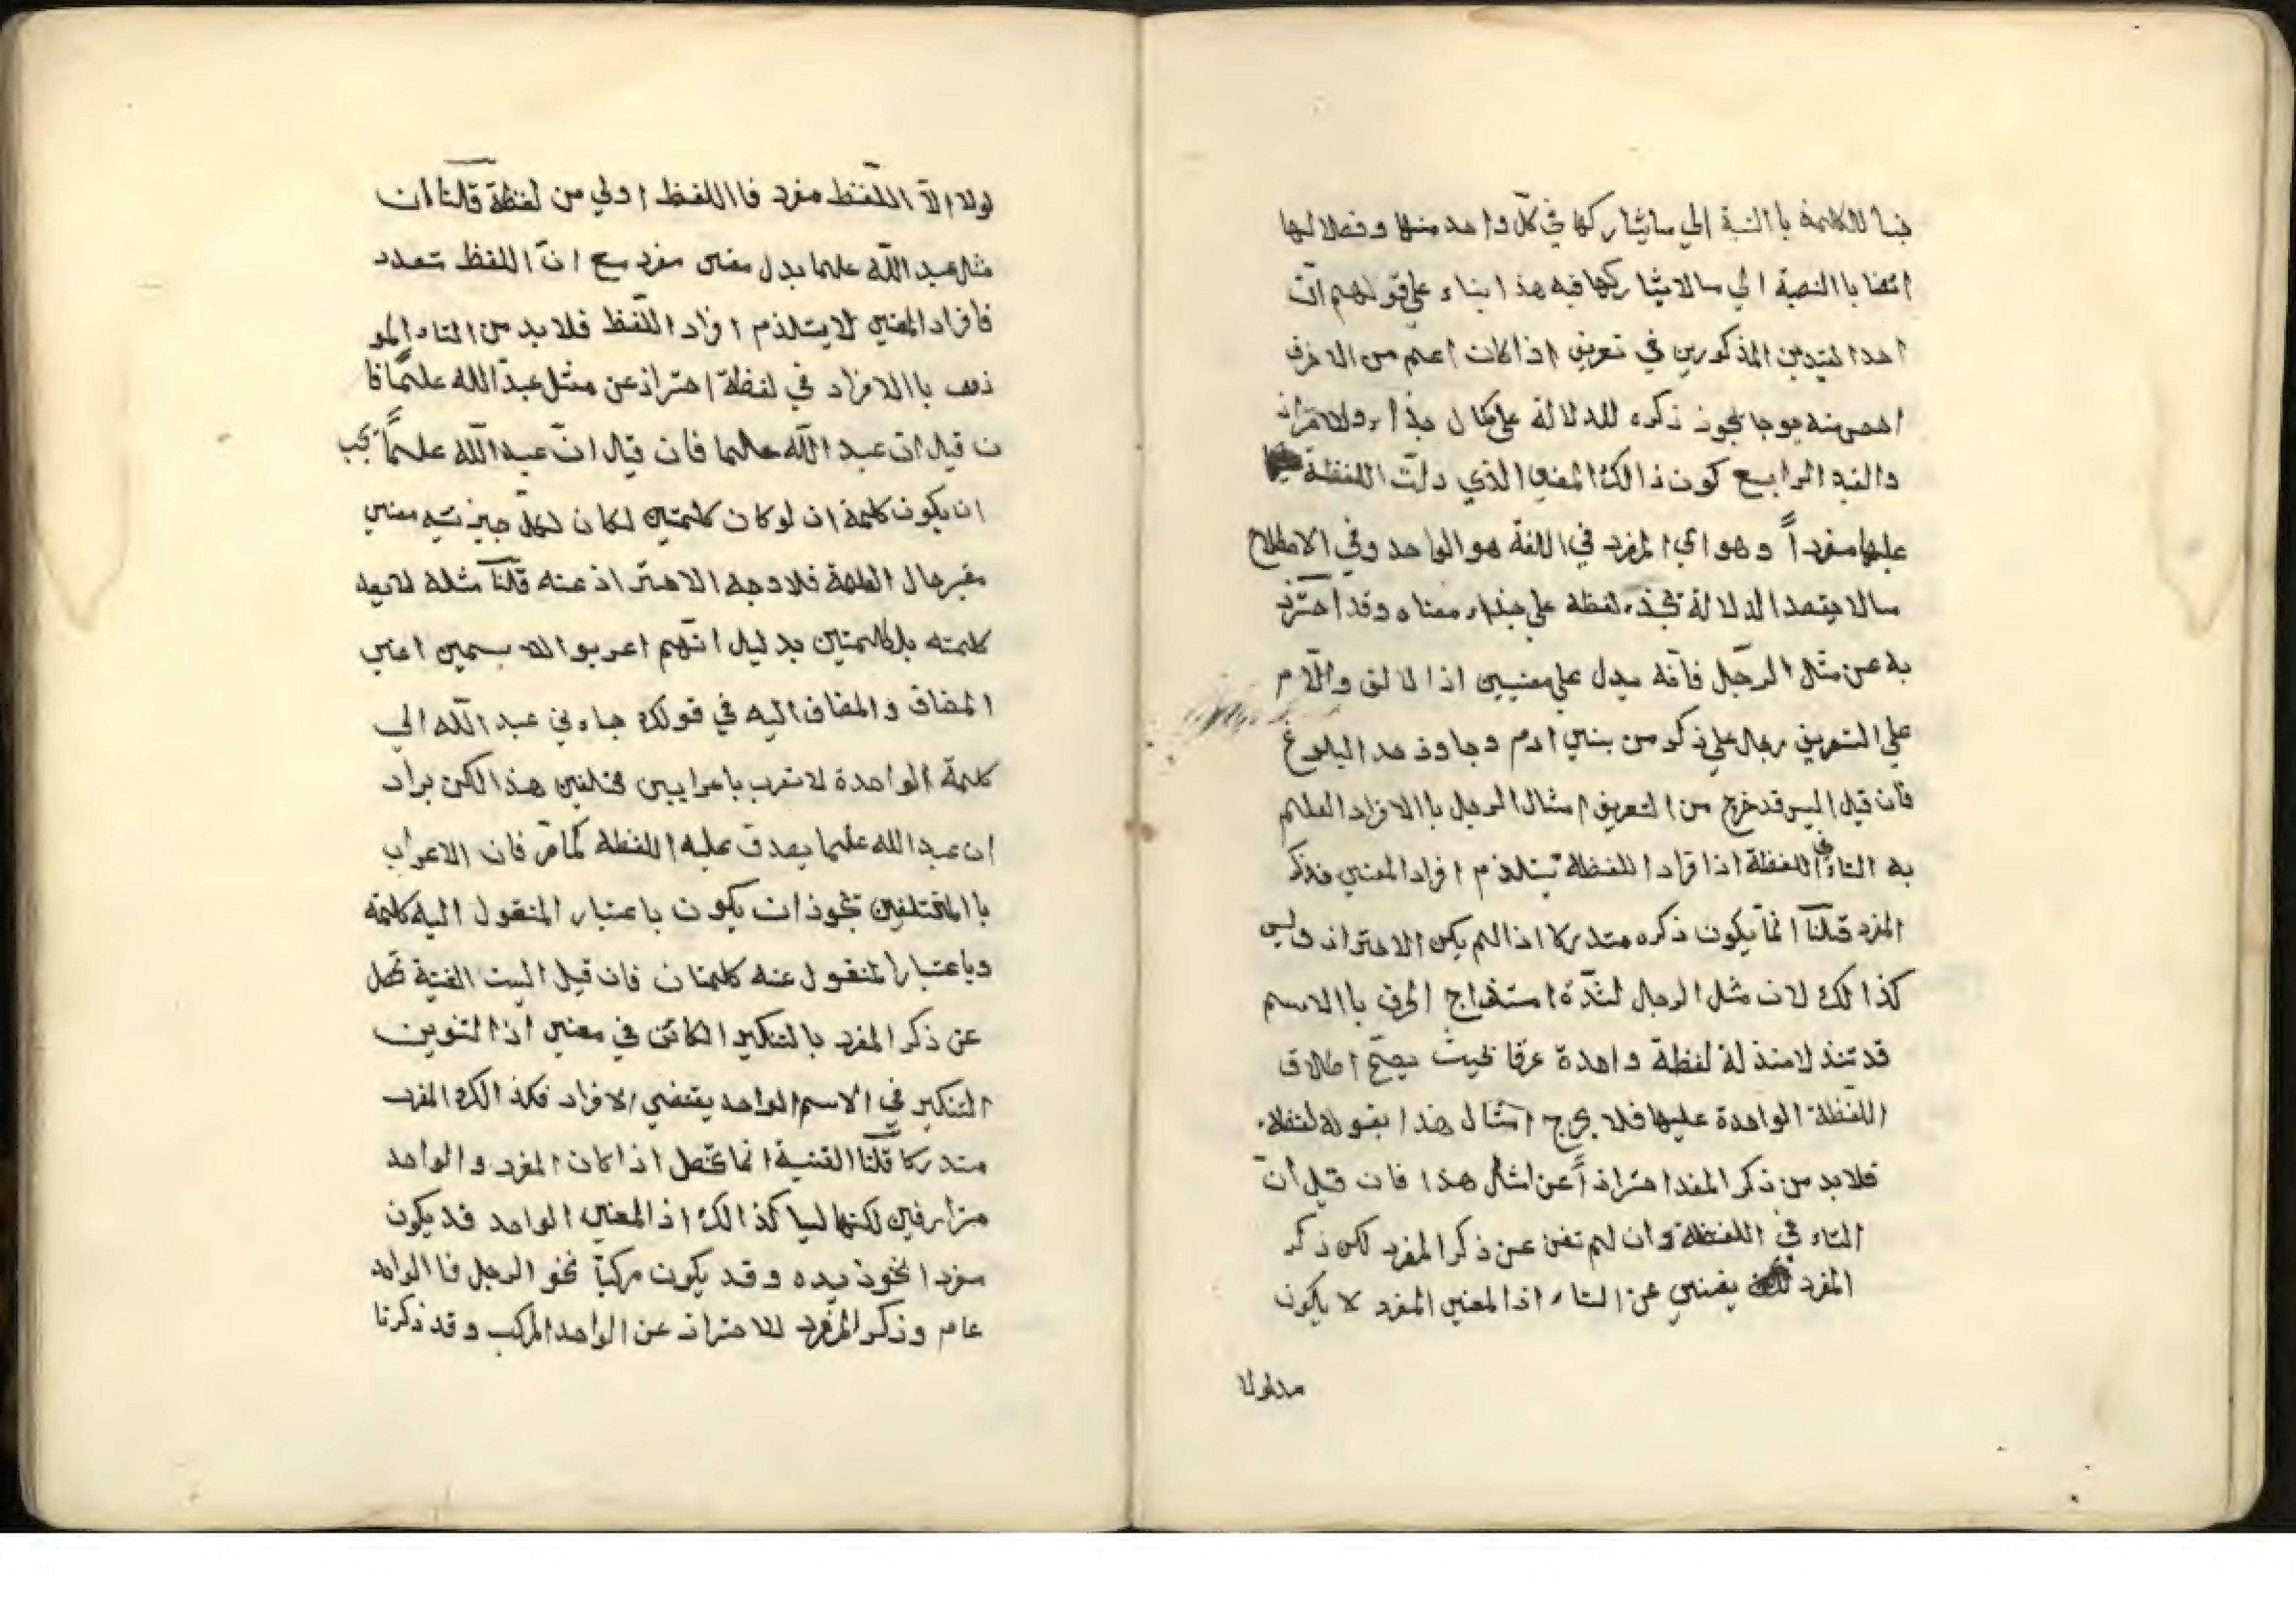 جنسا للكلمة باالنسبة الي ما يشاركها في كل واحد منها وفصلا لها
ايضا باالنصبة الي ما لا يشاركها فيه هذا بناء علي قولهم ان
احدا لقيدين المذكورين في تعريف اذا كان اعلم من الاخر
والقيد الرابع كون ذالك المعني الذي دلت اللفظة
عليها مفرداً وهو اي المفرد في اللغة هو الواحد وفي الاصطلاح
ما لا يقصد الدلالة بجذء لفظه علي جذاء معناه وقد احترز
به عن مثل الرجل فانه يدل علي معنيين اذا لالف واللام
علي التعريف رجال علي ذكر من بنين ادم وجاوذ حد البلوغ
فان قيل اليس قد خرج من التعريف امثال الرجل باالافراد العلم
به التاء في اللفظة اذا فراد اللفظة يستلذم افراد المعني فذكر
المفرد قلنا انما يكون ذكره مستدركا اذا لم يكن الاحتراذ وليس
كذالك لان مثل الرجال لشدة امتذاج الحرف باالاسم
قد تنذلا منذلة لفظة واحدة عرفا بحيث يصح اطلاق
اللفظة الواحدة عليها فلا يخرج امثال هذا بقوله لفظة
فلا بد من ذكر المفد احتراذاً عن امثال هذا فان قيل ان
التاء في اللفظة وان لم تغن عن ذكر المفرد لكن ذكر
المفرد يغنين عن التاء اذا لمعنين المفرد لا يكون
مدلولا
لولا الا اللفظ مفرد فااللفظ اولي من لفظة قلنا ان
مثل عبد الله علما يدل معنين مفرد مع ان اللفظ متعدد
فافراد المعنين لا يستلذم افراد اللفظ فلا بد من التاء المو
ذف باالافراد في لفظة احتراذ عن مثل عبد الله علماً فا
ن قيل ان عبد الله علما فان قيل ان عبد الله علماً يجب
ان يكون كلمة اذ لو كان كلمتين لكان لكل جيزئيه معنين
مغير حال العلمية فلا وجه الاحتراذ عنه قلنا مثله لا يعد
كلمته بل كالمتين بدليل انهم اعربوا الا سمين اعني
المضاف والمضاف اليه في قولك جاءني عبد الله الي
كلمة الواحدة لا تعرب باعرابين مختلفين هذا لكن يراد
ان عبد الله علما يصدق عليه اللفظة كما مر فان الاعراب
باالمختلفين يجوذ ان يكون باعتبار المنقول اليه كلمة
وباعتبار المنقول عنه كلمتان فان قيل اليست الغنية تحصل
عن ذكر المفرد بالتنكير الكائن في معنين اذا لتنوين
التنكير في الاسم الواحد يقتضي الافراد فكذالك المفرد
مستدركا قلنا الغنية انما تحصل اذا كان المفرد والواحد
مترادفين لكنها ليسا كذالك اذ المعنين الواحد قد يكون
مفردا نحوذيده وقد يكون مركباً نحو الرجل فا الواحد
عام وذكر المفرد للاحتراذ عن الواحد المركب وقد ذكرنا